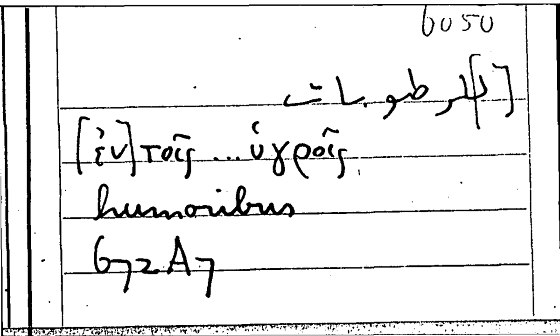 6050
[ب]الرطوبات
[ἐν] τοῖς ... ὑγροῖς
humoribus
672A7